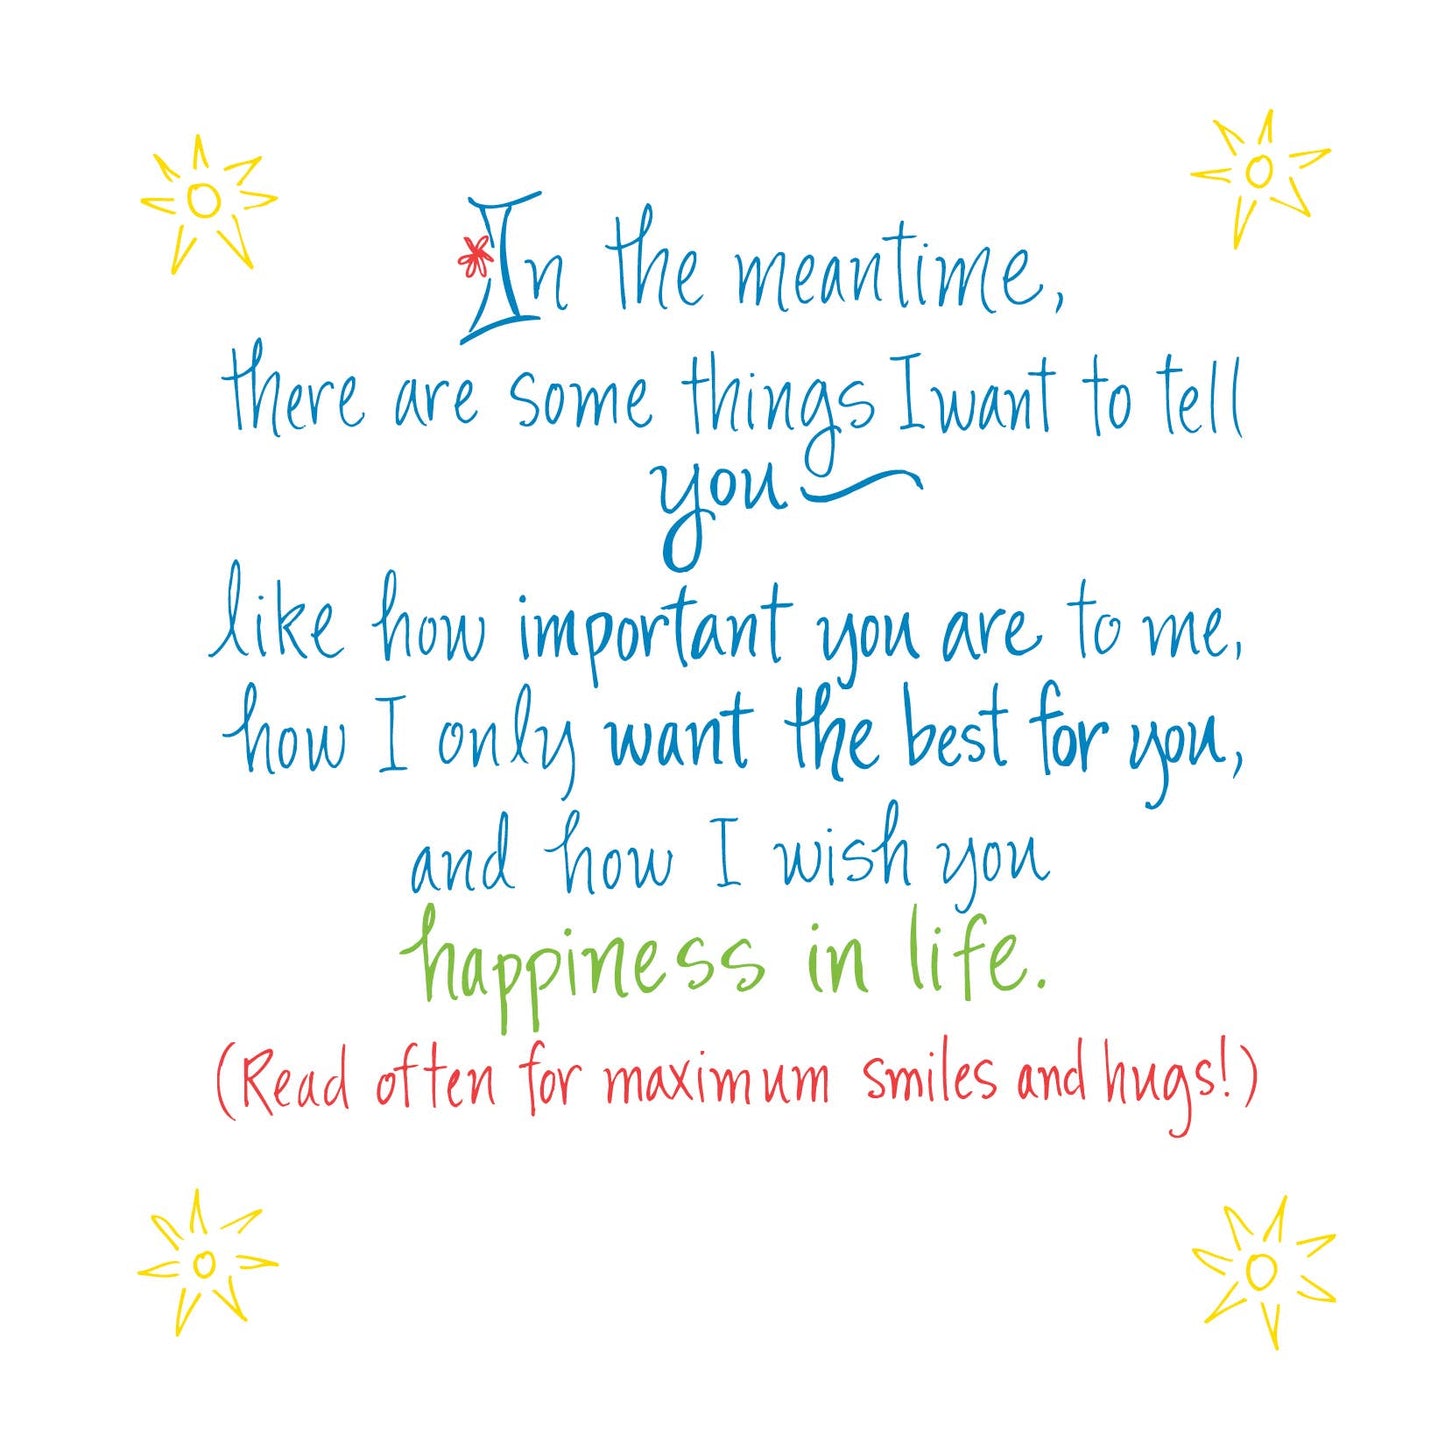 In the meantime,
there are some things I want to tell
you
like how important you are to me,
how I only want the best for you,
and how I wish you
happiness in life.
(Read often for maximum smiles and hugs!)